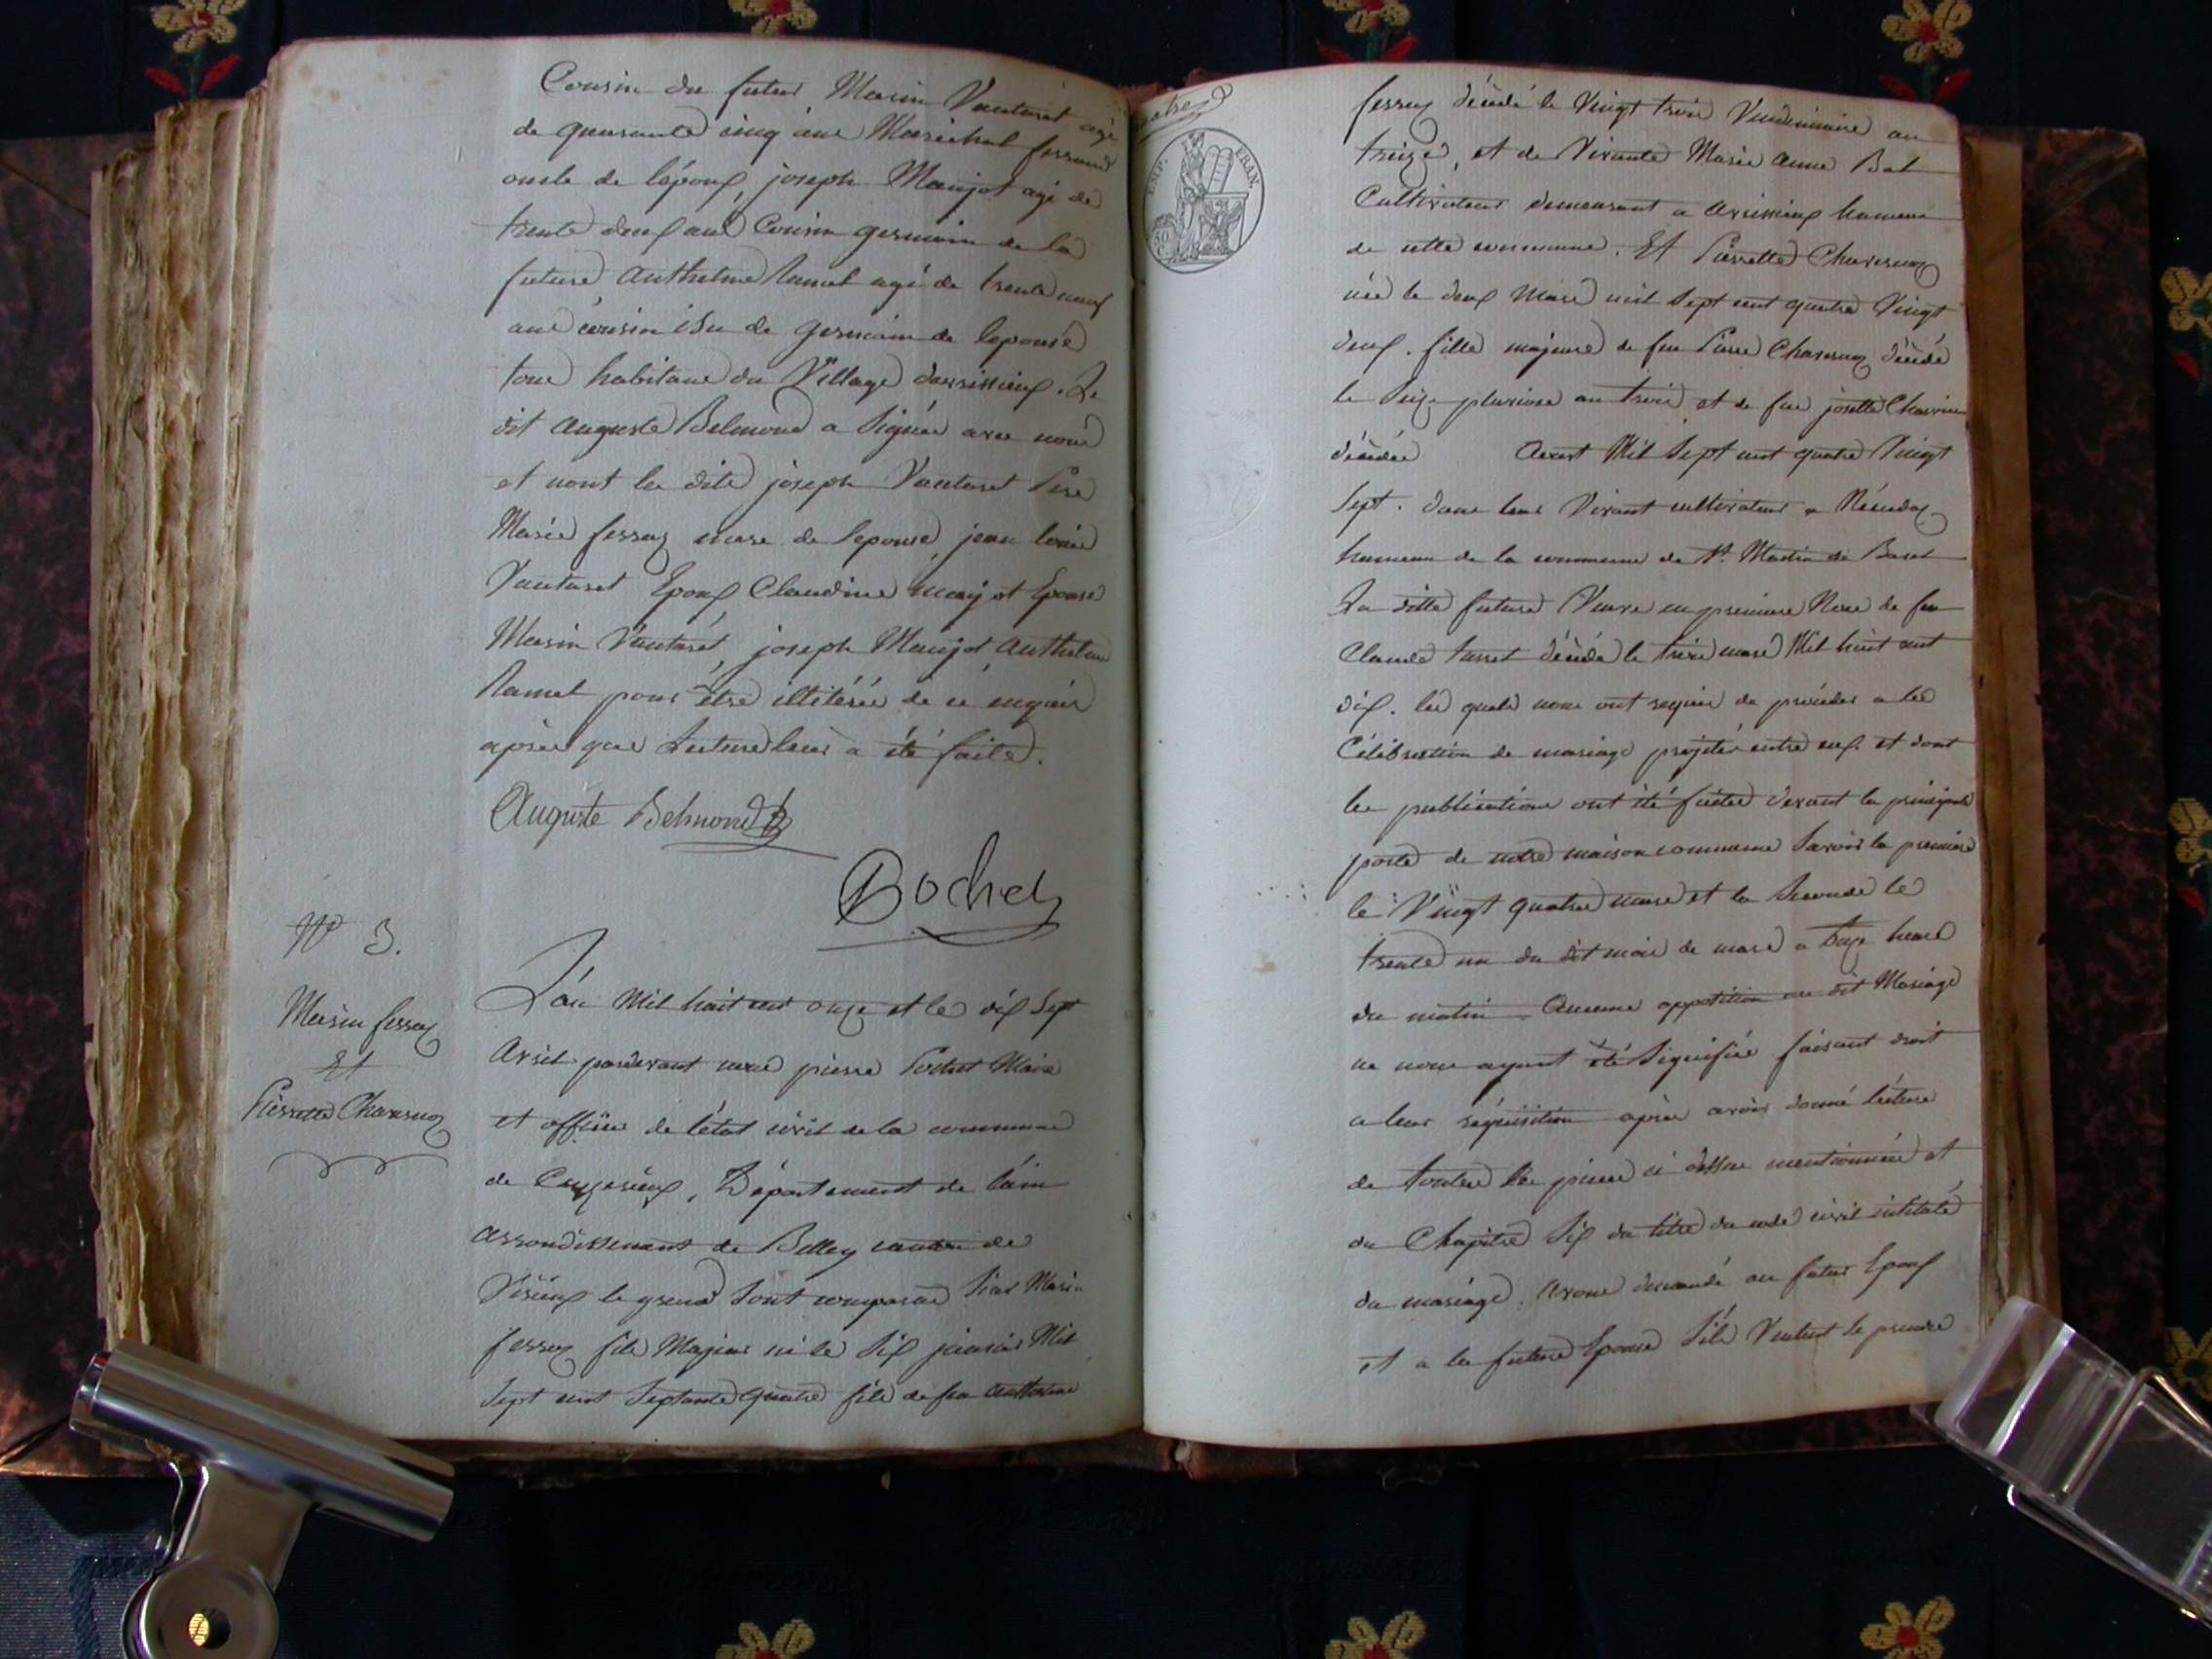 Cousin du futur, Marin Vautaret agé
de quarante cinq ans Maréchal ferrand
oncle de lépoux, joseph Maujot agé de
trente deux ans Cousin germain de la
future Anthelme Ramel agé de trente neuf
ans cousin isu de germain de lepouse
tous habitans du Village darrissieux. Le
dit Auguste Belmond a Signée avec nous
et nont les dits joseph Vautaret Pere
Marie ferruz mere de lepouse, jean louis
Vautaret Epoux Claudine maujot Epouse
Marin Vautaret, joseph Maujot Anthelme
Ramel pour être illitérée de ce enquis
après que Lecture leur a été faite.
Auguste Belmond
Bochet
N° 3.
Marin ferruz
Et
Pierrette Charvruz
L'an Mil huit cent onze et le dix Sept
Avril pardevant nous pierre Bochet Maire
et officier de l'état civil de la commune
de Ceyzerieux, Département de l'ain
Arrondissement de Belley canton de
Virieux le grand Sont comparus Siar Marin
ferruz fils Majeur né le Six janvier Mil
Sept cent Septante quatre fils de feu Anthelme
EMP. FRAN.
50 C.
ferruz décédé le Vingt trois Vendémiaire an
treize, et de Vivante Marie Anne Bal
Cultivateur demeurant a Avrissieux hameau
de cette commune. Et Pierrette Charvruz
née le deux Mars mil Sept cent quatre Vingt
deux. fille majeure de feu Pierre Charvruz décédé
le Seize pluviose an trois et de feu josette
décédée Aoust Mil Sept cent quatre Vingt
Sept. dans leur Vivant cultivateur a
hameau de la commune de St. Martin de Bavel
La ditte future Veuve en premiere Noce de feu
Claude décédé le treize mars Mil huit cent
dix. les quels nous ont requis de procéder a la
Célébration de mariage projeté entre eux et dont
les publications ont été faites devant la principale
porte de notre maison commune Savoir la premiere
le Vingt quatre mars et la Seconde le
trente un du dit mois de mars a onze heures
du matin. Aucune opposition au dit Mariage
ne nous ayant été Signifiée faisant droit
a leur réquisition après avoir donné lécture
de toutes les pieces ci dessus mentionnées et
du Chapitre Six du titre du code civil intitulé
du mariage. Avons demandé au futur Epoux
et a la future Epouse S'ils Veulent Se prendre